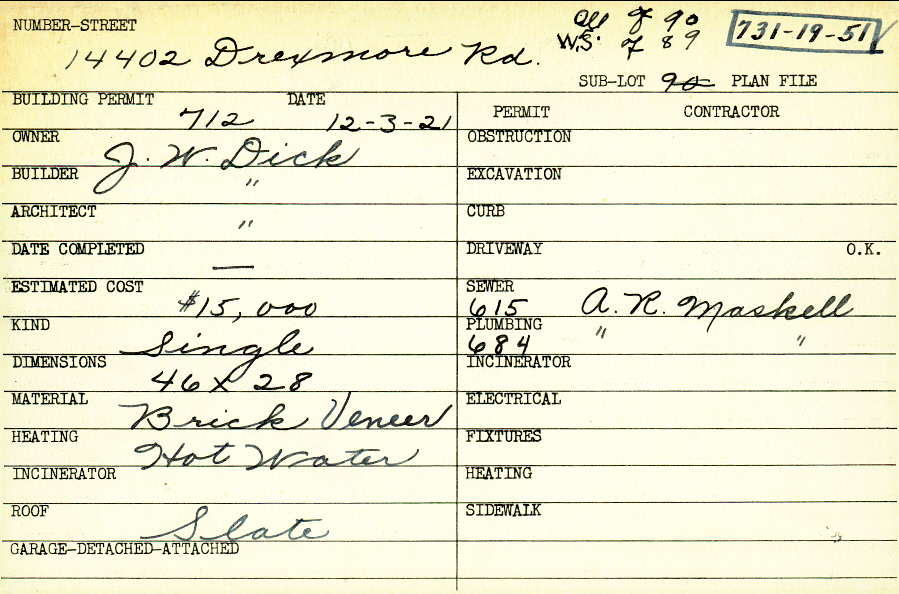 NUMBER-STREET
14402 Drexmore Rd.
All of 90
W.S. of 89
731-19-51
SUB-LOT 90 PLAN FILE
BUILDING PERMIT 712 DATE 12-3-21
OWNER J. W. Dick
BUILDER "
ARCHITECT "
DATE COMPLETED —
ESTIMATED COST $15,000
KIND Single
DIMENSIONS 46 x 28
MATERIAL Brick Veneer
HEATING Hot Water
INCINERATOR
ROOF Slate
GARAGE-DETACHED-ATTACHED
PERMIT CONTRACTOR
OBSTRUCTION
EXCAVATION
CURB
DRIVEWAY O.K.
SEWER
615 A. R. Maskell
PLUMBING
684 " "
INCINERATOR
ELECTRICAL
FIXTURES
HEATING
SIDEWALK